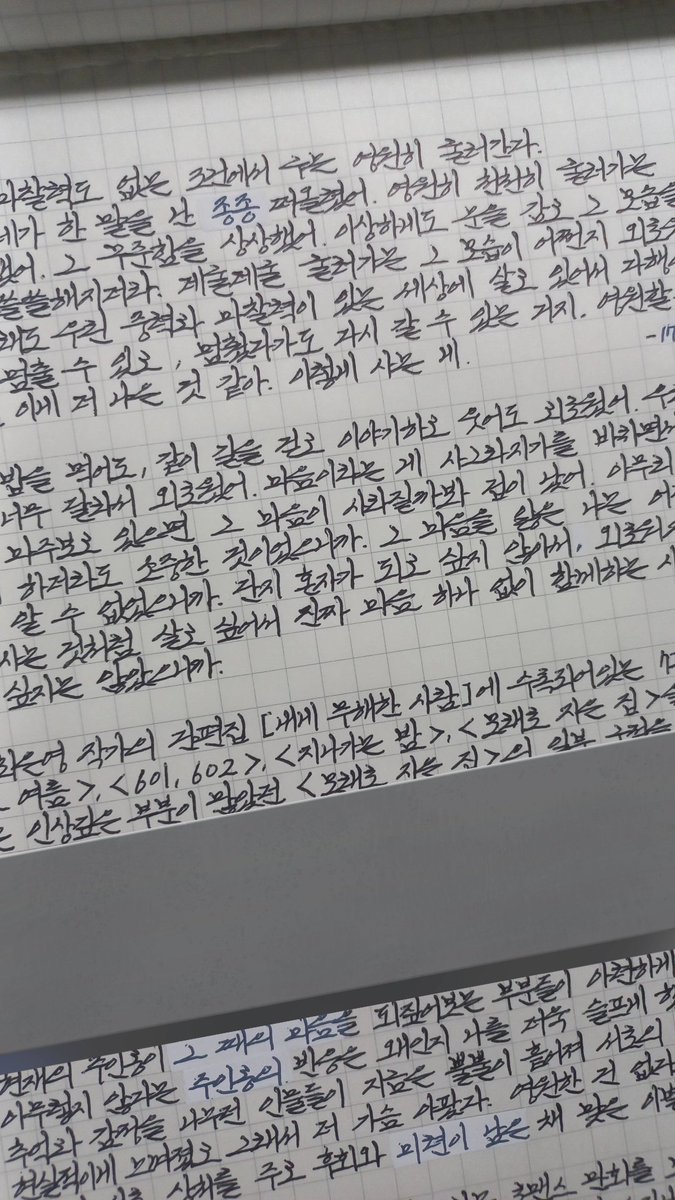 마찰력도 없는 조건에서 추는 영원히 흘러간다.
네가 한 말을 난 종종 떠올렸어. 영원히 천천히 흘러가는
어. 그 꾸준함을 상상했어. 이상하게도 눈을 감고 그 모습을
쓸쓸해지더라. 데굴데굴 흘러가는 그 모습이 어쩐지 외로
래도 우린 중력과 마찰력이 있는 세상에 살고 있어서 다행
멈출 수 있고, 멈췄다가도 다시 갈 수 있는 거지. 영원할
이게 더 나은 것 같아. 이렇게 사는 게.
-17
밥을 먹어도, 같이 길을 걷고 이야기하고 웃어도 외로웠어. 우
너무 달라서 외로웠어. 마음이라는 게 사그라지기를 바라면서
마주보고 있으면 그 마음이 사라질까봐 겁이 났어. 아무리
하더라도 소중한 것이었으니까. 그 마음을 잃은 나는 어
알 수 없었으니까. 단지 혼자가 되고 싶지 않아서, 외로
사는 것처럼 살고 싶어서 진짜 마음 하나 없이 함께하는 사
싶지는 않았으니까.
최은영 작가의 단편집 [내게 무해한 사람]에 수록되어있는
여름>, <601, 602>, <지나가는 밤>, <모래로 지은 집>
은 인상깊은 부분이 많았던 <모래로 지은 집>의 일부 구절을
현재의 주인공이 그 때의 마음을 되짚어보는 부분들이 아련하게
아무렇지 않다는 주인공의 반응은 왜인지 나를 더욱 슬프게 했
추억과 감정을 나누던 인물들이 지금은 뿔뿔이 흩어져 서로의
현실적이게 느껴졌고 그래서 더 가슴 아팠다. 영원한 건 없다
상처를 주고 후회와 미련이 남은 채 맞은 이별
만화를